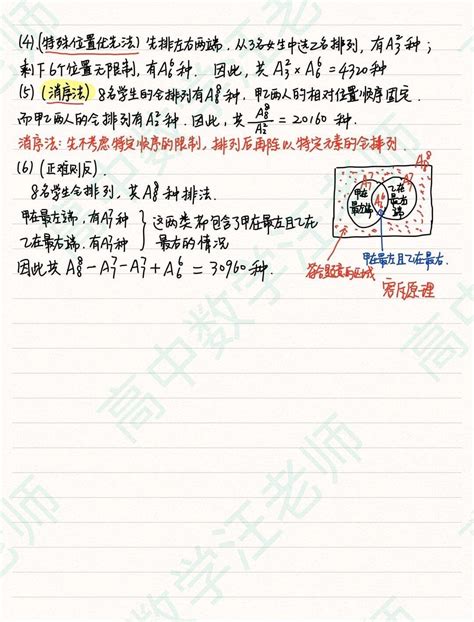 (4) (特殊位置优先法) 先排左右两端, 从3名女生中选2名排列, 有A₃²种;
剩下6个位置无限制, 有A₆⁶种. 因此, 共A₃²×A₆⁶=4320种
(5) (消序法) 8名学生的全排列有A₈⁸种, 甲乙两人的相对位置顺序固定.
而甲乙两人的全排列有A₂²种. 因此, 共A₈⁸/A₂²=20160种.
消序法: 先不考虑特定顺序的限制, 排列后再除以特定元素的全排列.
(6) (正难则反).
8名学生全排列, 共A₈⁸种排法.
甲在最左端, 有A₇⁷种
乙在最右端, 有A₇⁷种
} 这两类都包含了甲在最左且乙在
最右的情况
因此共A₈⁸-A₇⁷-A₇⁷+A₆⁶=30960种.
A₈⁸
A₇⁷
A₇⁷
甲在
最左端
A₆⁶
乙在
最右端
符合题意的区域
甲在最左且乙在最右.
容斥原理
高中数学汪老师
高中数学汪老师